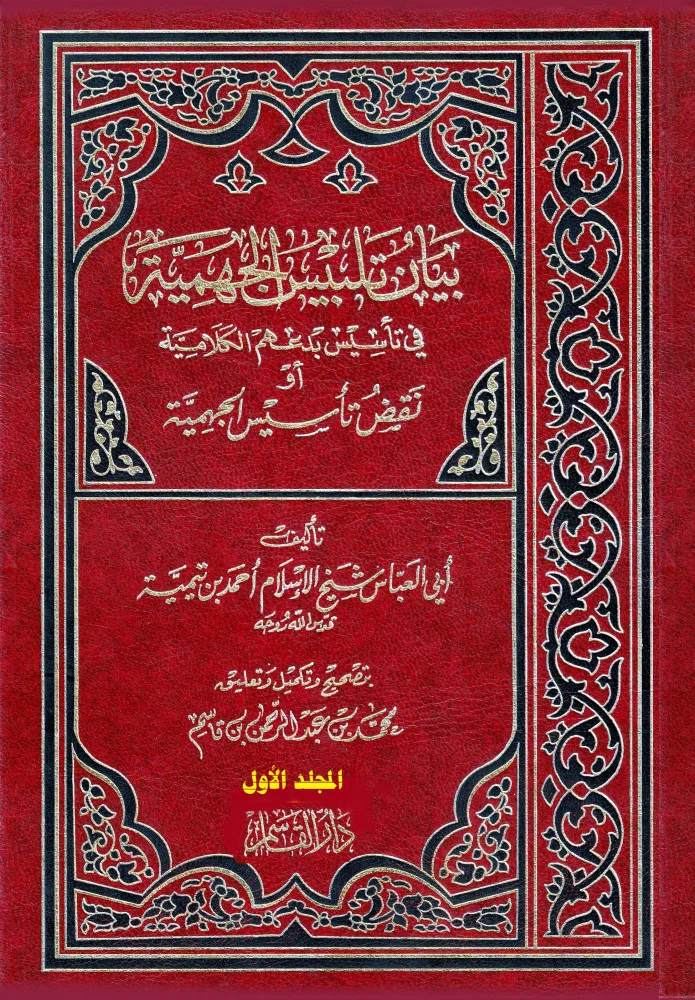 بَيَانُ تَلبيسِ الجَهميَّة
في تأسِيسْ بدعهم الكلاميَّة
أَو
نَقضُ تأسيسْ الجَهميَّة
تأليف
أبي العبّاس شيخ الإسلام أحمد بن تيميَّة
قدس الله رُوحَه
بتصحيح وتكميل وتعليق
محمّد بن عبد الرحمن بن قاسم
المجلد الأول
دَارُ القَاسم